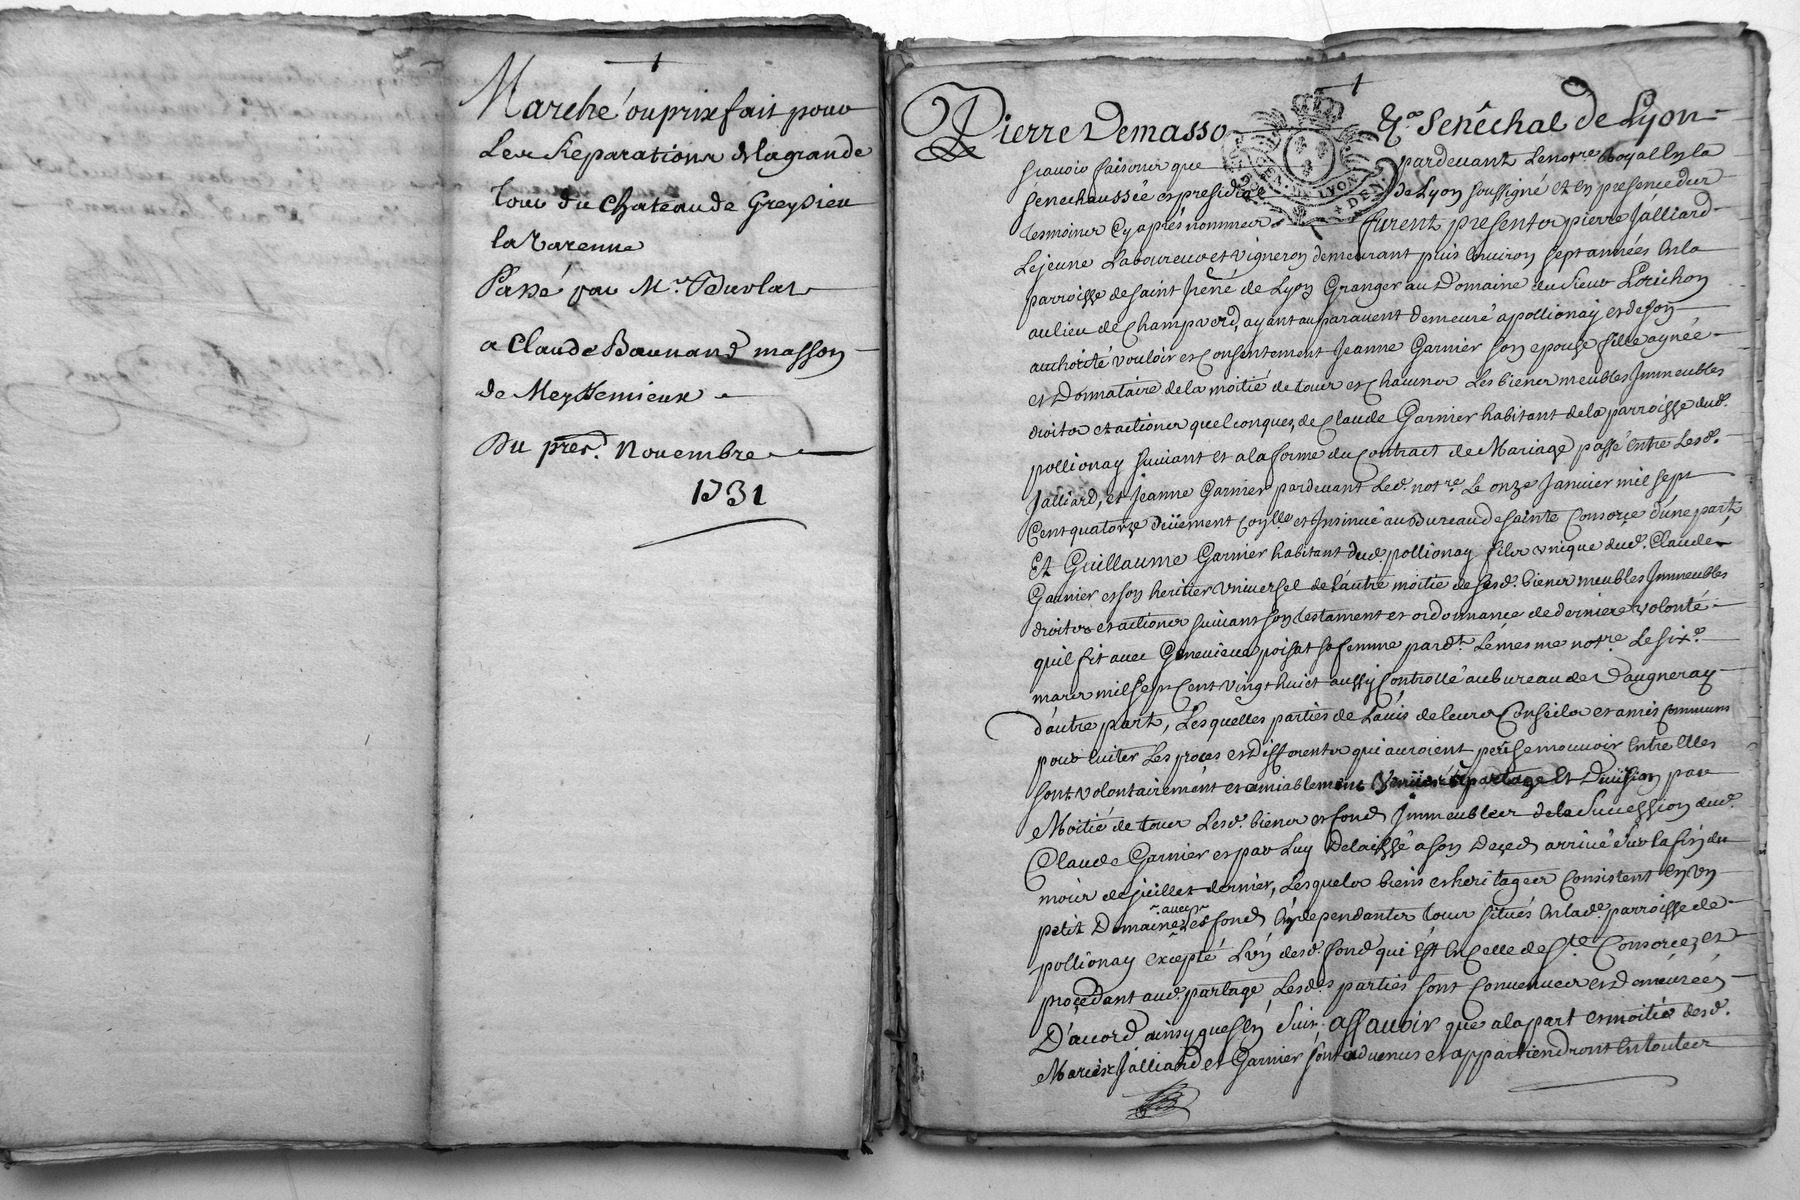 Marché ou prixfait pour
Les Reparations de la grande
Tour du Chateau de Greysieu
la Varenne
Passé par Mr.
a Claude Baunand masson
de Meyssemieux
Du prer. Novembre
1731
Pierre Demasso Sénéchal de Lyon
Scavoir faisons que pardevant Le notre. Royal En la
senechaussée et presidial de Lyon soussigné et En presence des
tesmoins Cy après nommes furent presents pierre Jalliard
Lejeune Laboureur et Vigneron demeurant puis Environ sept années En la
parroisse de saint Irené de Lyon Granger au Domaine du sieur Lorichon
au lieu de Champverd, ayant auparavent demeuré a pollionay et de son
authorité vouloir et Consentement Jeanne Garnier son epouse fille aynée
et Donnataire de la moitié de tous et Chacuns Les biens meubles Immeubles
droits et actions quelconques de Claude Garnier habitant de la parroisse dud.
pollionay suivant et a la forme du Contract de Mariage passé Entre Lesd.
Jalliard, et Jeanne Garnier pardevant Led. notre. Le onze Janvier mil sept
Cent quatorze deüement Coñlle et Insinué au Bureau de sainte Consorce d'une part
Et Guillaume Garnier habitant dud. pollionay fils unique dud. Claude
Garnier et son heritier Universel de l'autre moitié de sesd. biens meubles Immeubles
droits et actions suivant son testament et ordonnance de derniere volonté
quil fit avec Genevieve poisat sa femme pardt. Le mesme notre. Le sixe.
mars mil sept Cent vingt huict aussy Controllé au bureau de Vaugneray
d'autre part, Lesquelles parties de L'avis de leurs Conseils et amis Communs
pour Eviter Les procès et differents qui auroient pû s'Emouvoir Entre Elles
sont volontairement et amiablement Venües à partage Et Division par
Moitié de tous Lesd. biens et fonds Immeubles de la Succession dud.
Claude Garnier et par Luy Delaissé a son Deçed arrivé sur la fin du
mois de juillet dernier, Lesquels biens et heritages Consistent En Un
petit Domaine avec Les fonds En dependants tous situés En lad. parroisse de
pollionay excepté L'un desd. fonds qui Est En Celle de Ste. Consorce, et
proçedant aud. partage, Lesdes parties sont Convenues et demeurées
D'accord ainsy que s'En suit. assavoir que a la part et moitié desd.
Mariés Jalliard et Garnier sont advenus et appartiendront En toutes